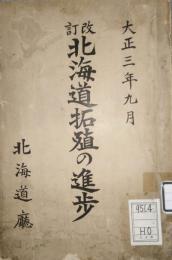 大正三年九月
改訂
北海道拓殖の進歩
北海道廳
951.4
H.O